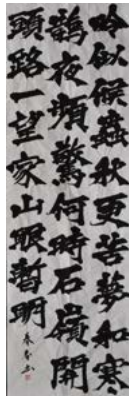 吟似候蟲秋更苦夢和寒
鵲夜頻驚何時石嶺開
頭路一望家山眼暫明